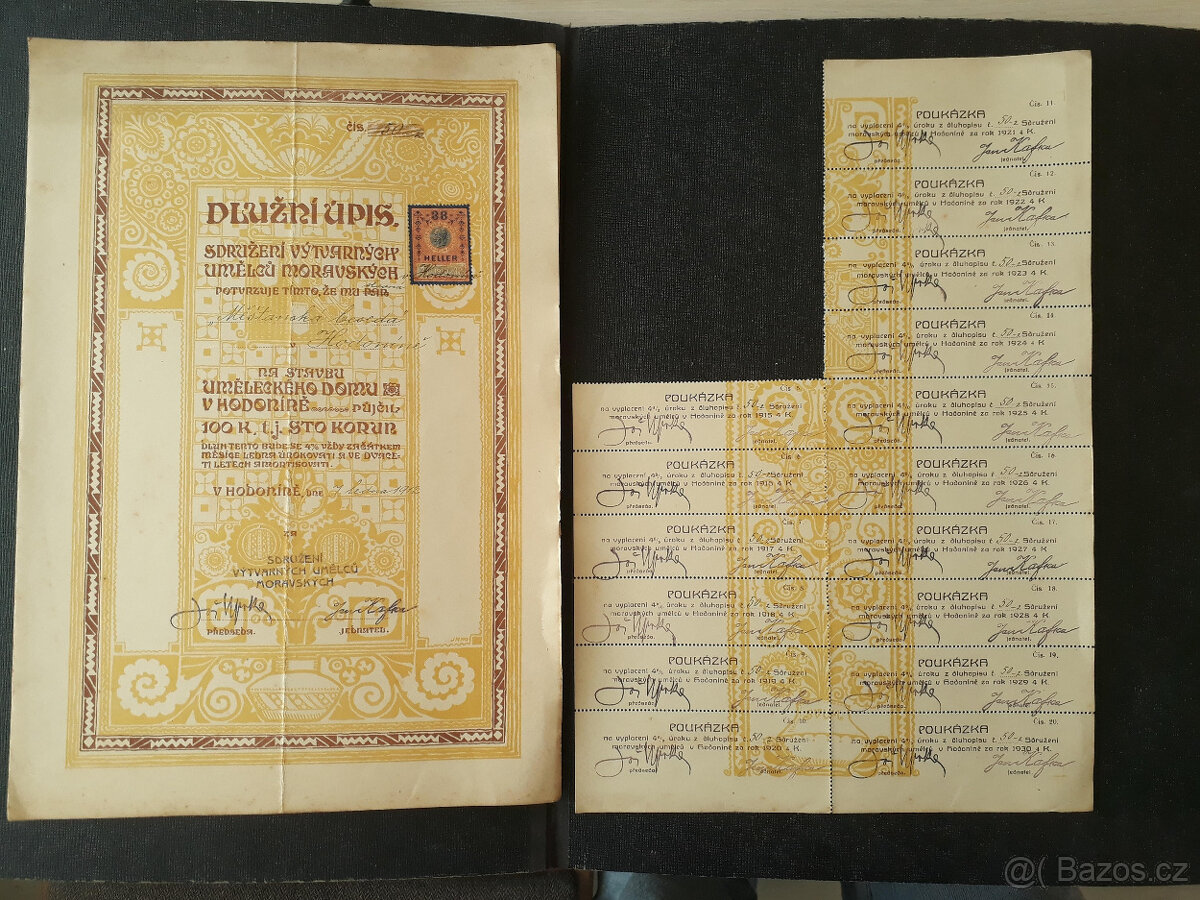 čís. 50
DLUŽNÍ ÚPIS.
88
HELLER
SDRUŽENÍ VÝTVARNÝCH
UMĚLCŮ MORAVSKÝCH
POTVRZUJE TÍMTO, ŽE MU
„Měšťanská beseda"
v Hodoníně
NA STAVBU
UMĚLECKÉHO DOMU
V HODONÍNĚ PŮJČIL
100 K, t.j. STO KORUN
DLUH TENTO BUDE SE 4% VŽDY ZAČÁTKEM
MĚSÍCE LEDNA ÚROKOVATI A VE DVACE-
TI LETECH AMORTISOVATI.
V HODONÍNĚ, DNE ledna 1912
ZA
SDRUŽENÍ
VÝTVARNÝCH UMĚLCŮ
MORAVSKÝCH
Jan Kafka
PŘEDSEDA. JEDNATEL.
Čís. 11.
POUKÁZKA
na vyplacení 4% úroku z dluhopisu č. 50 Sdružení
moravských umělců v Hodoníně za rok 1921 4 K.
Jan Kafka
předseda. jednatel.
Čís. 12.
POUKÁZKA
na vyplacení 4% úroku z dluhopisu č. 50 Sdružení
moravských umělců v Hodoníně za rok 1922 4 K.
Jan Kafka
předseda. jednatel.
Čís. 13.
POUKÁZKA
na vyplacení 4% úroku z dluhopisu č. 50 Sdružení
moravských umělců v Hodoníně za rok 1923 4 K.
Jan Kafka
předseda. jednatel.
Čís. 14.
POUKÁZKA
na vyplacení 4% úroku z dluhopisu č. 50 Sdružení
moravských umělců v Hodoníně za rok 1924 4 K.
Jan Kafka
předseda. jednatel.
Čís. 15.
POUKÁZKA
na vyplacení 4% úroku z dluhopisu č. 50 Sdružení
moravských umělců v Hodoníně za rok 1925 4 K.
Jan Kafka
předseda. jednatel.
Čís. 16.
POUKÁZKA
na vyplacení 4% úroku z dluhopisu č. 50 Sdružení
moravských umělců v Hodoníně za rok 1926 4 K.
Jan Kafka
předseda. jednatel.
Čís. 17.
POUKÁZKA
na vyplacení 4% úroku z dluhopisu č. 50 Sdružení
moravských umělců v Hodoníně za rok 1927 4 K.
Jan Kafka
předseda. jednatel.
Čís. 18.
POUKÁZKA
na vyplacení 4% úroku z dluhopisu č. 50 Sdružení
moravských umělců v Hodoníně za rok 1928 4 K.
Jan Kafka
předseda. jednatel.
Čís. 19.
POUKÁZKA
na vyplacení 4% úroku z dluhopisu č. 50 Sdružení
moravských umělců v Hodoníně za rok 1929 4 K.
Jan Kafka
předseda. jednatel.
Čís. 20.
POUKÁZKA
na vyplacení 4% úroku z dluhopisu č. 50 Sdružení
moravských umělců v Hodoníně za rok 1930 4 K.
Jan Kafka
předseda. jednatel.
Čís. 5.
POUKÁZKA
na vyplacení 4% úroku z dluhopisu č. 50 Sdružení
moravských umělců v Hodoníně za rok 1915 4 K.
Jan Kafka
předseda. jednatel.
Čís. 6.
POUKÁZKA
na vyplacení 4% úroku z dluhopisu č. 50 Sdružení
moravských umělců v Hodoníně za rok 1916 4 K.
Jan Kafka
předseda. jednatel.
Čís. 7.
POUKÁZKA
na vyplacení 4% úroku z dluhopisu č. 50 Sdružení
moravských umělců v Hodoníně za rok 1917 4 K.
Jan Kafka
předseda. jednatel.
Čís. 8.
POUKÁZKA
na vyplacení 4% úroku z dluhopisu č. 50 Sdružení
moravských umělců v Hodoníně za rok 1918 4 K.
Jan Kafka
předseda. jednatel.
Čís. 9.
POUKÁZKA
na vyplacení 4% úroku z dluhopisu č. 50 Sdružení
moravských umělců v Hodoníně za rok 1919 4 K.
Jan Kafka
předseda. jednatel.
Čís. 10.
POUKÁZKA
na vyplacení 4% úroku z dluhopisu č. 50 Sdružení
moravských umělců v Hodoníně za rok 1920 4 K.
Jan Kafka
předseda. jednatel.
@( Bazos.cz